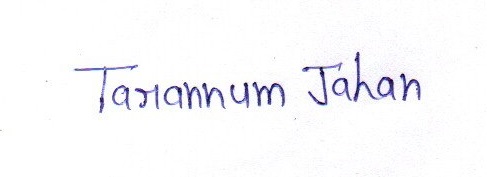 Tarannum Jahan